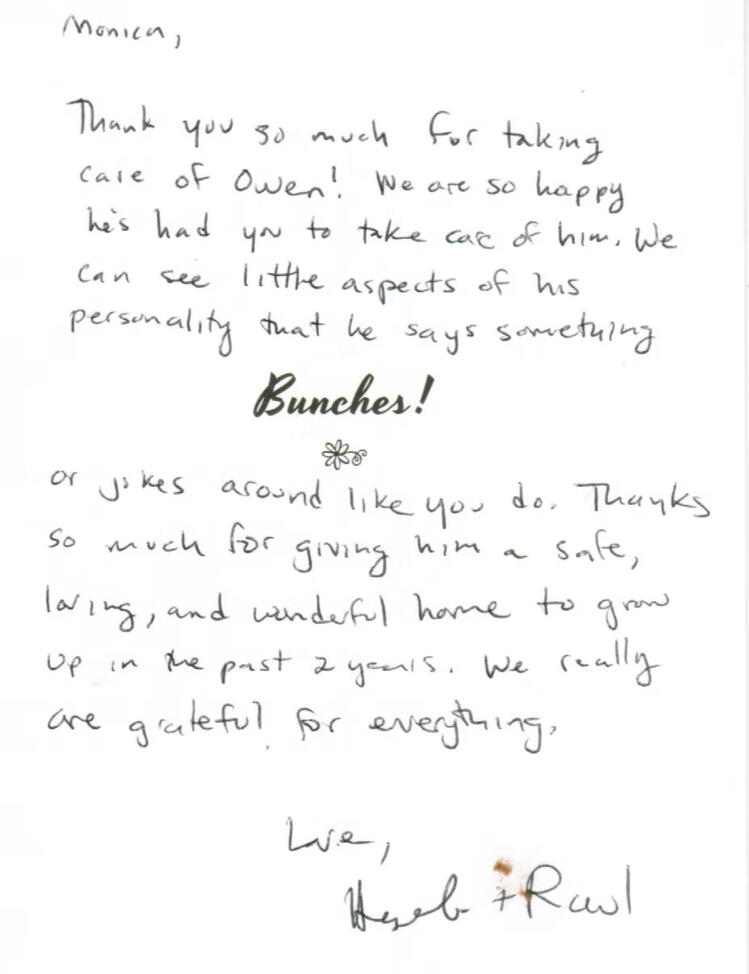 Monica,
Thank you so much for taking
care of Owen! We are so happy
he's had you to take care of him. We
can see little aspects of his
personality that he says something
Bunches!
or jokes around like you do. Thanks
so much for giving him a safe,
loving, and wonderful home to grow
up in the past 2 years. We really
are grateful for everything.
Love,
+ Raul